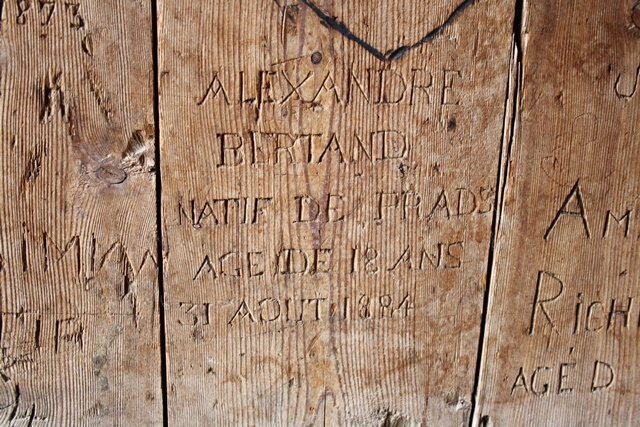 1873
ALEXANDRE
BERTAND
NATIF DE PRADS
AGE DE 18 ANS
31 AOUT 1884
AM
RICH
AGE D